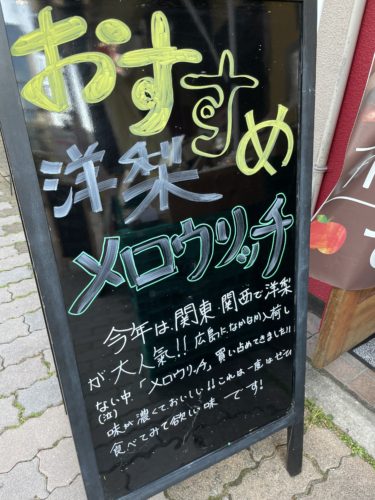 おすすめ
洋梨
メロウリッチ
今年は、関東・関西で洋梨
が大人氣!! 広島になかなか入荷し
ない中「メロウリッチ」買い占めてきました!!
(泣)
味が濃くておいしい!!これは一度はぜひ
食べてみて欲しい味です!